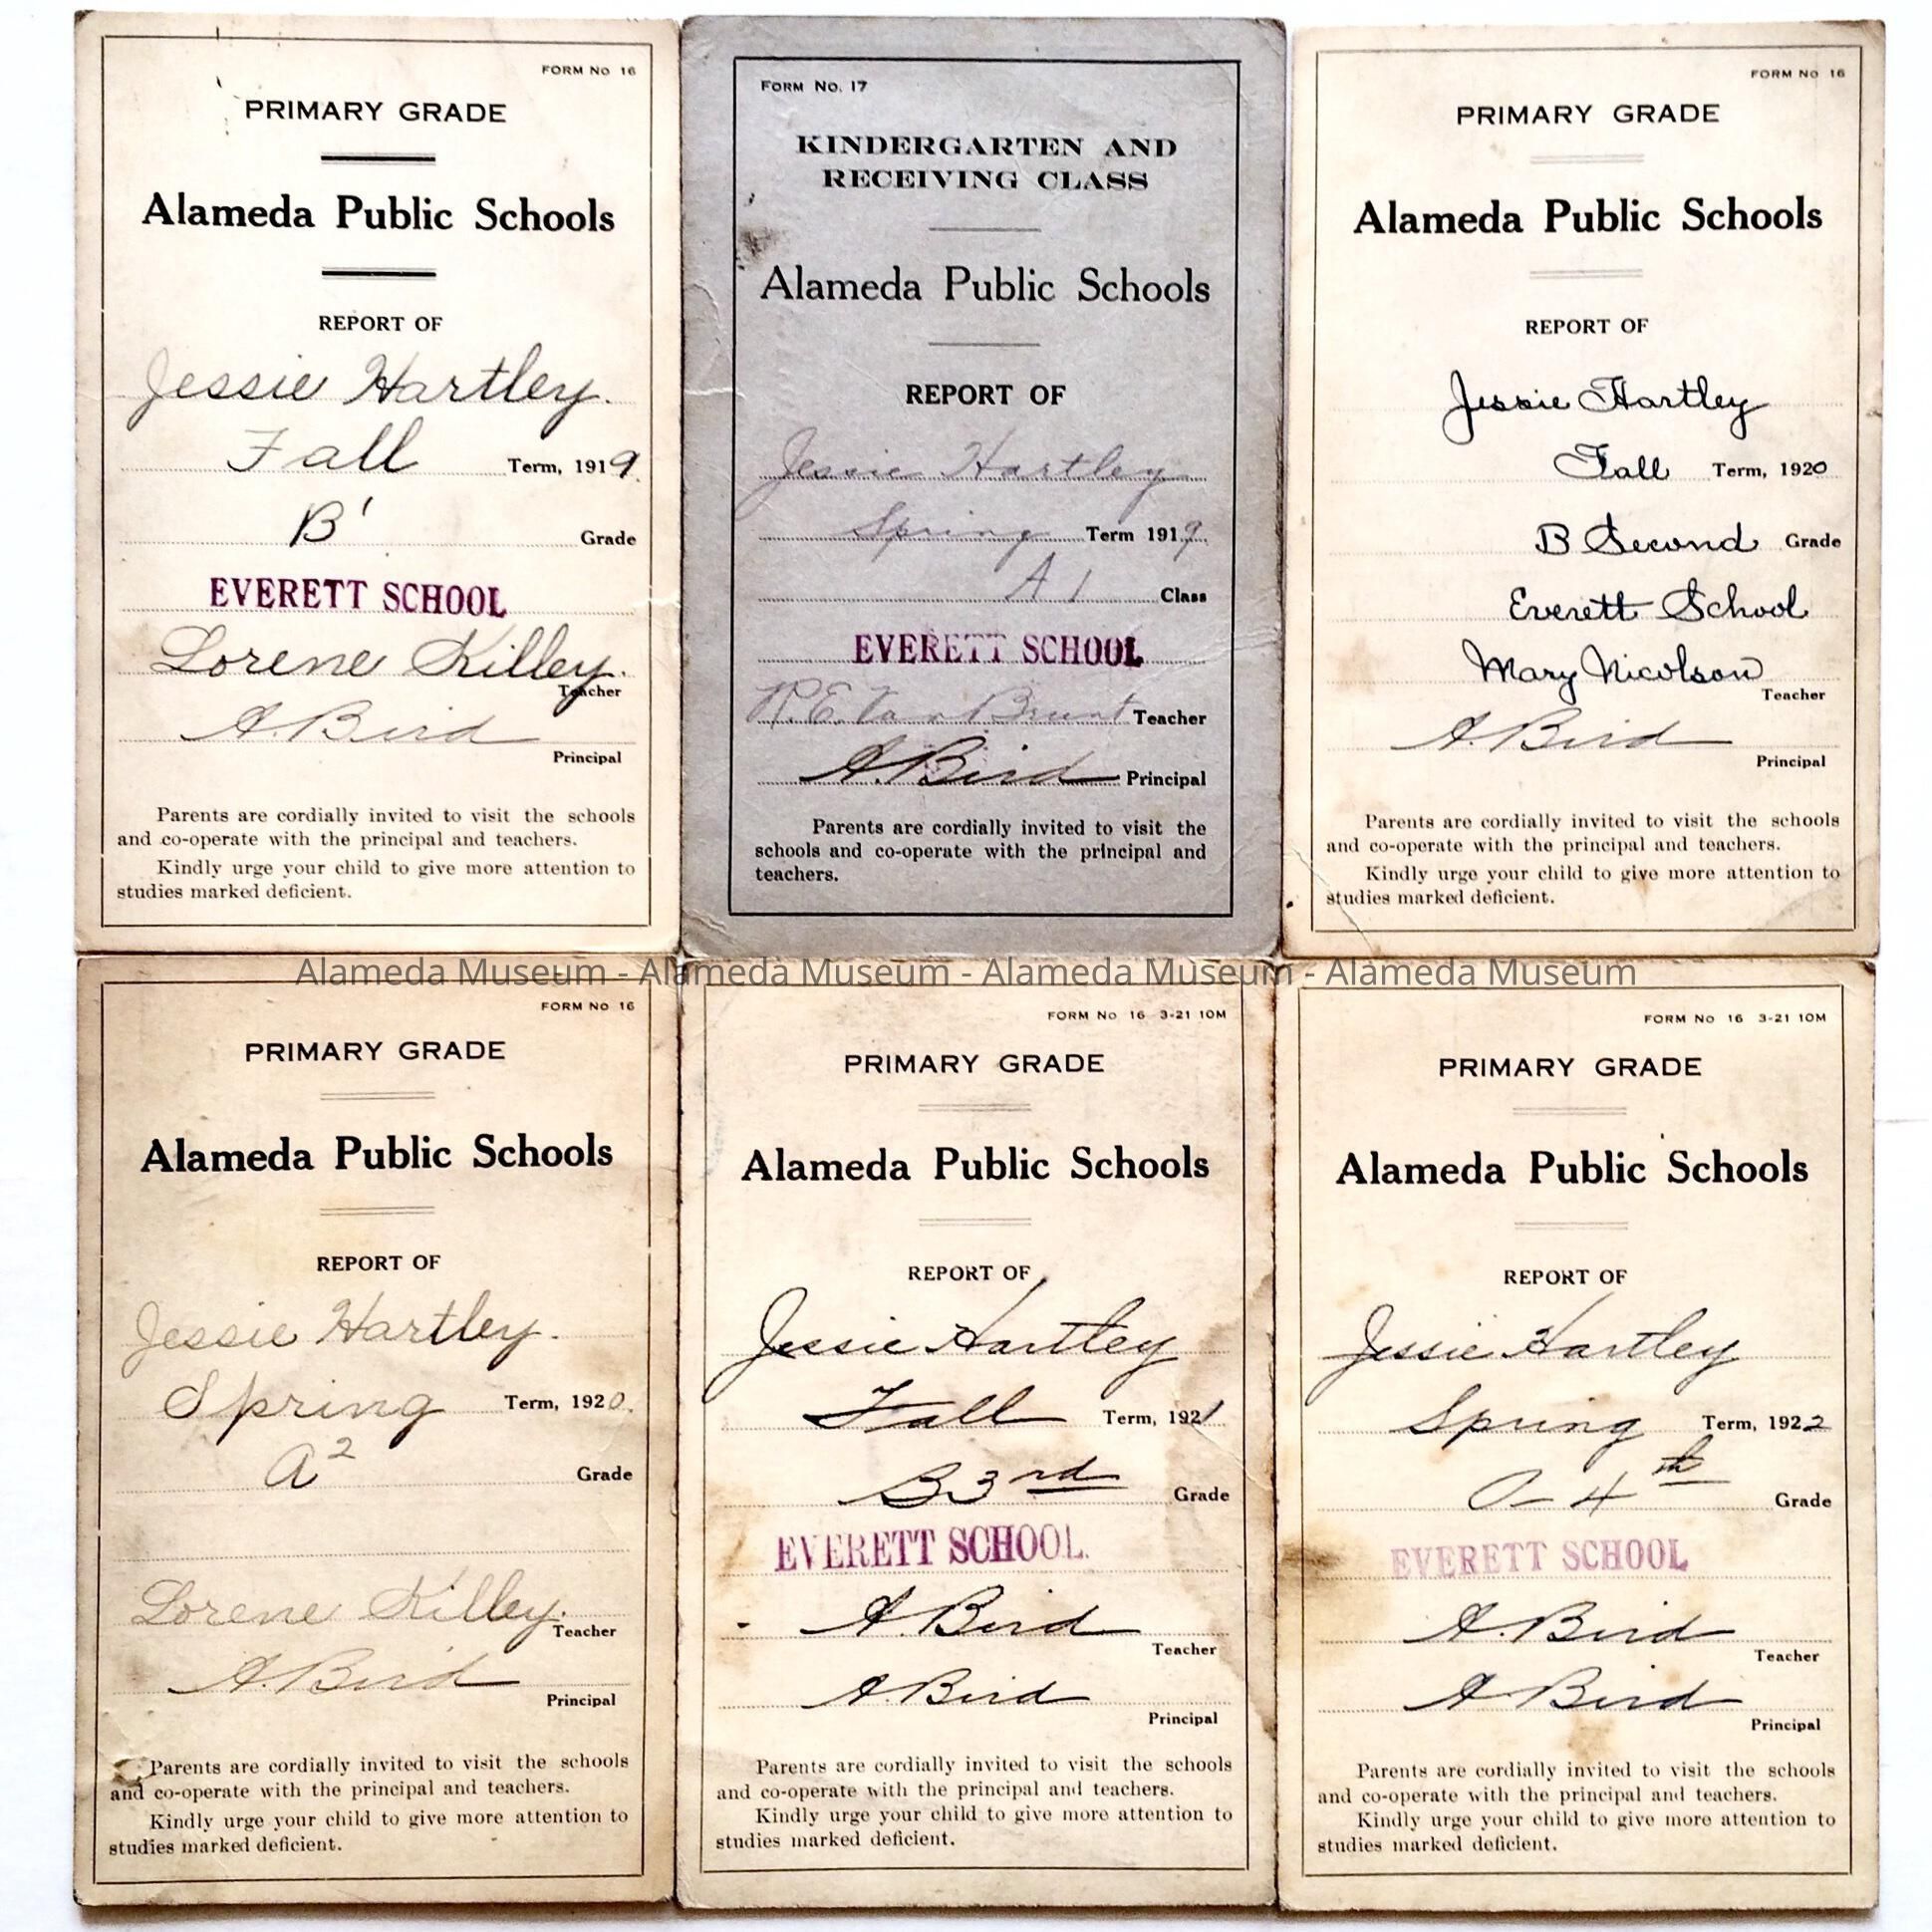 FORM No 16
PRIMARY GRADE
Alameda Public Schools
REPORT OF
Jessie Hartley.
Fall Term, 1919.
B' Grade
EVERETT SCHOOL
Lorene Killey.
Teacher
A. Bird
Principal
Parents are cordially invited to visit the schools
and co-operate with the principal and teachers.
Kindly urge your child to give more attention to
studies marked deficient.
FORM No. 17
KINDERGARTEN AND
RECEIVING CLASS
Alameda Public Schools
REPORT OF
Jessie Hartley
Spring Term 1919
A 1 Class
EVERETT SCHOOL
R. E. Van Brunt Teacher
A. Bird Principal
Parents are cordially invited to visit the
schools and co-operate with the principal and
teachers.
FORM No 16
PRIMARY GRADE
Alameda Public Schools
REPORT OF
Jessie Hartley
Fall Term, 1920
B Second Grade
Everett School
Mary Nicolson
Teacher
A. Bird
Principal
Parents are cordially invited to visit the schools
and co-operate with the principal and teachers.
Kindly urge your child to give more attention to
studies marked deficient.
Alameda Museum - Alameda Museum - Alameda Museum - Alameda Museum
FORM No 16
PRIMARY GRADE
Alameda Public Schools
REPORT OF
Jessie Hartley.
Spring Term, 1920.
A² Grade
Lorene Killey.
Teacher
A. Bird
Principal
Parents are cordially invited to visit the schools
and co-operate with the principal and teachers.
Kindly urge your child to give more attention to
studies marked deficient.
FORM No 16 3-21 10M
PRIMARY GRADE
Alameda Public Schools
REPORT OF
Jessie Hartley
Fall Term, 1921
B 3rd Grade
EVERETT SCHOOL.
A. Bird
Teacher
A. Bird
Principal
Parents are cordially invited to visit the schools
and co-operate with the principal and teachers.
Kindly urge your child to give more attention to
studies marked deficient.
FORM No 16 3-21 10M
PRIMARY GRADE
Alameda Public Schools
REPORT OF
Jessie Hartley
Spring Term, 1922
4th Grade
EVERETT SCHOOL
A. Bird
Teacher
A. Bird
Principal
Parents are cordially invited to visit the schools
and co-operate with the principal and teachers.
Kindly urge your child to give more attention to
studies marked deficient.